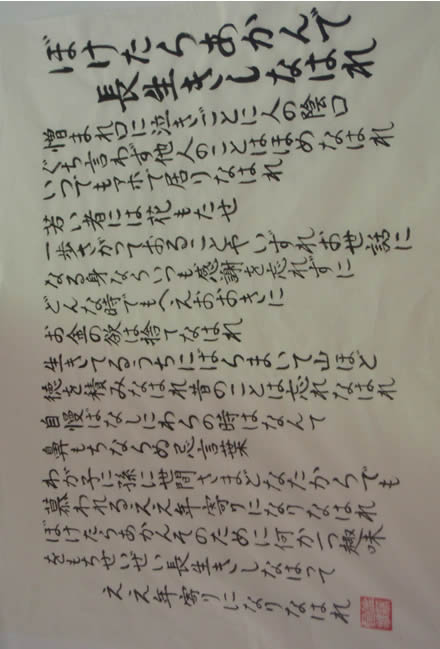 ぼけたらあかんで
長生きしなはれ
憎まれ口に泣きごとに人の陰口
ぐち言わず他人のことはほめなはれ
いつでもアホで居りなはれ
若い者には花もたせ
一歩さがっておることやいずれお世話に
なる身ならいつも感謝を忘れずに
どんな時でもへえおおきに
お金の欲は捨てなはれ
生きてるうちにばらまいて山ほど
徳を積みなはれ昔のことは忘れなはれ
自慢ばなしにわらの時はなんて
鼻もちならぬ忌言葉
わが子に孫に世間さまどなたからでも
慕われるええ年寄りになりなはれ
ぼけたらあかんそのために何か一つ趣味
をもちせいぜい長生きしなはって
ええ年寄りになりなはれ